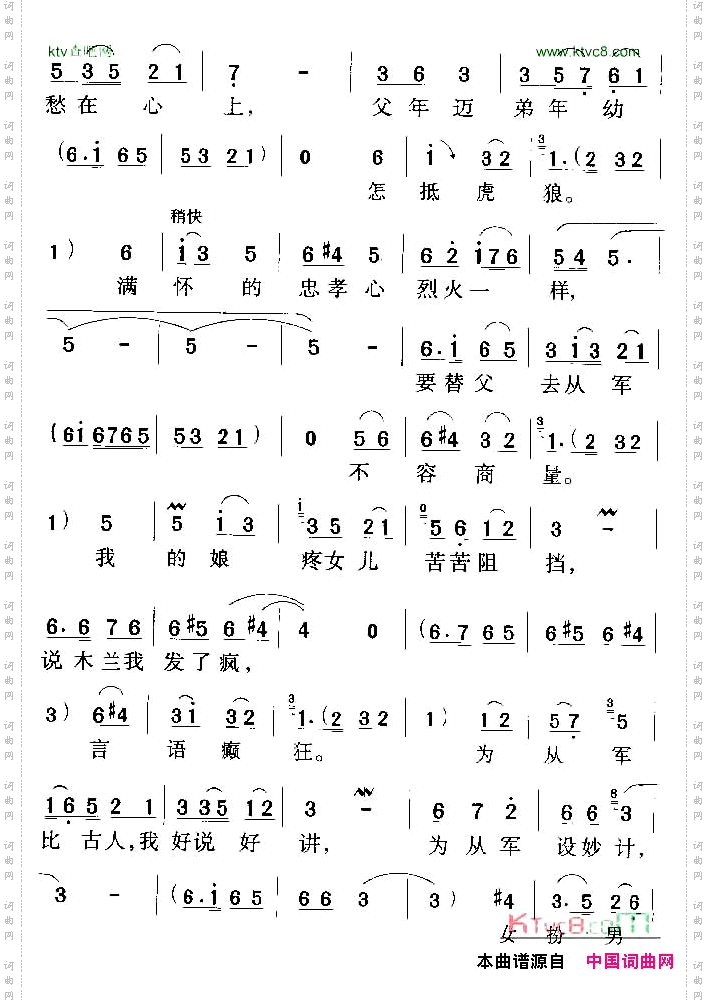 ktv www.ktvc8.com
5 3 5 2 1 | 7 - | 3 6 3 | 3 5 7 6 1
愁在 心 上, 父年迈 弟年 幼
(6. i 65 | 53 21) | 0 6 | i 32 | 3 1. (2 32
怎 抵 虎 狼。
稍快
1) 6 | i3 5 | 6#4 5 | 62 i76 | 54 5.
满 怀 的 忠孝心 烈火一 样,
5 - | 5 - | 5 - | 6. i 65 | 3 i3 21
要替父 去从 军
(6i 6765 | 53 21) | 0 56 | 6#4 32 | 3 1. (2 32
不 容 商 量。
1) 5 | 5 i3 | i 35 21 | 56 12 | 3 -
我 的 娘 疼女儿 苦苦阻 挡,
6. 6 76 | 6#5 6#4 | 4 0 | (6. 7 65 | 6#5 6#4
说木兰我 发了疯,
3) 6#4 | 3i 32 | 3 1. (2 32 | 1) 12 | 57 3 5
言 语 癫 狂。 为 从 军
165 21 | 335 12 | 3 - | 67 2 | 66 8 3
比 古人,我 好说 好 讲, 为从军 设妙计,
3 - | (6. i 65 | 66 3 | 3) #4 | 3. 5 26
女 扮 男
KTvc8.com
本曲谱源自 中国词曲网